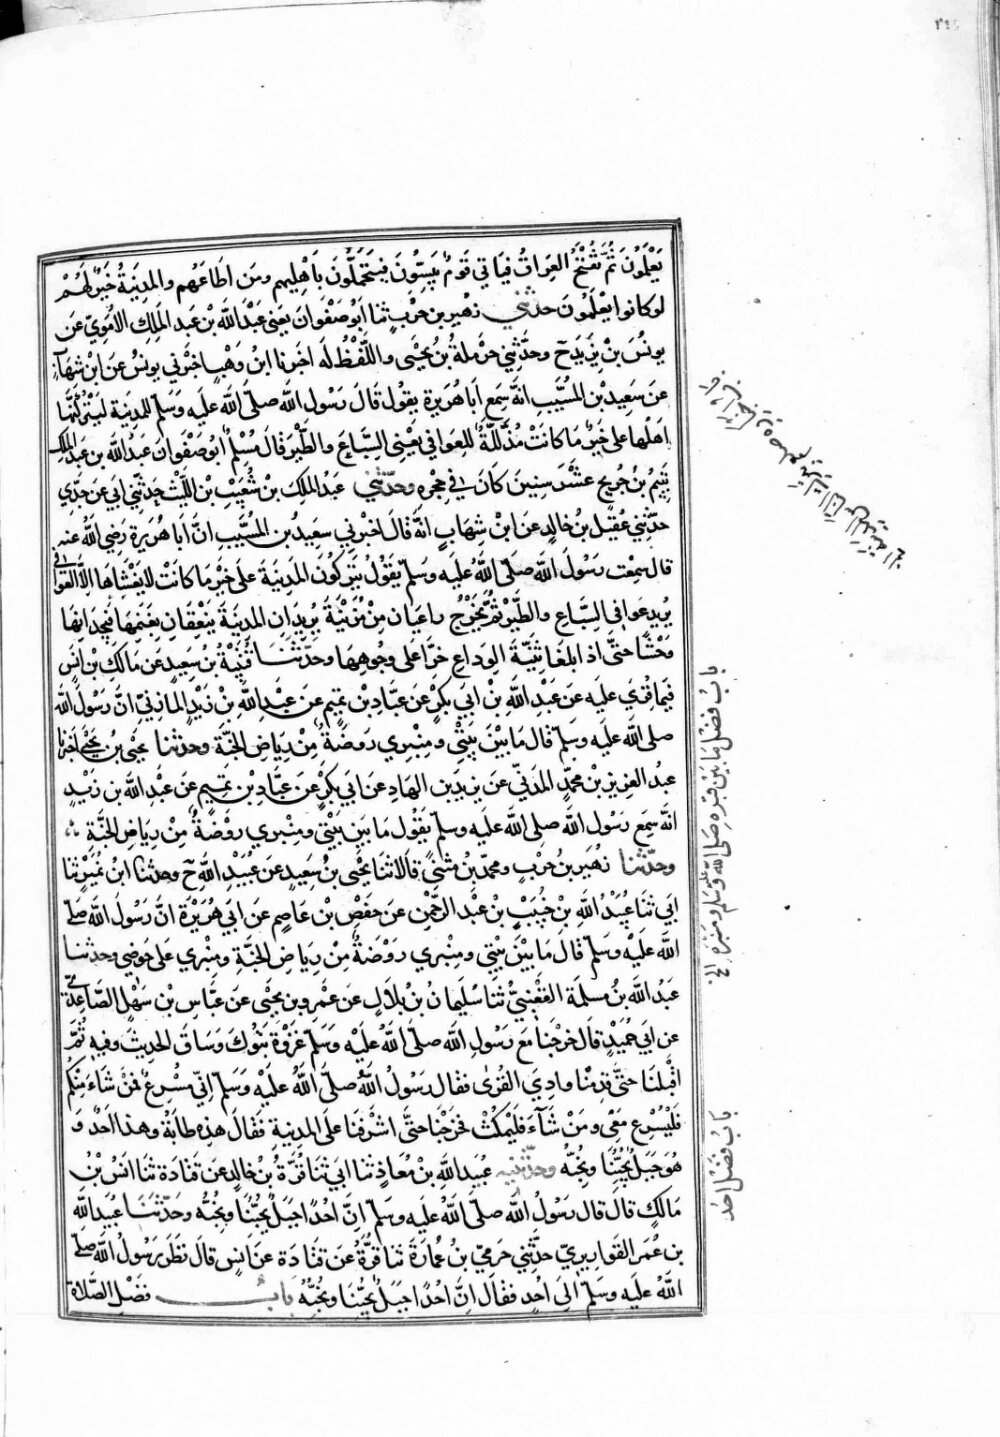 يَعْلَمُونَ ثُمَّ تُفْتَحُ العِرَاقُ فيَاتي قَومٌ يَبِسُّونَ فيَتَحَمَّلُونَ بَاَهْلِيهِم ومَن اَطَاعَهُم والمدِينَةُ خَيْرٌ لَهُمْ
لو كانوا يَعْلَمُونَ حدثني زهَيربن حَرْبٍ ثنا اَبُو صَفْوَانَ يعنى عَبْدُ اللّه بْن عَبد المَلِكِ الاُمَوِيّ عَن
يونسَ بْن يَزِيدَ ح وحدَّثنِي حَرْملةُ بْنُ يحْيى واللَّفْظُ لَه اخبرنا ابنُ وَهْبٍ اخبَرني يونسُ عَن ابْن شهَابٍ
عَن سَعِيد بْن المُسَيَّبِ انَّه سَمِعَ اَبَا هُرَيرة يقولُ قالَ رَسُولُ اللّه صلّى اللّه عليه وَسَلّم للمدِينَة ليَتْرُكَنَّهَا
اهلُها على خَيرِ مَا كانَتْ مُذَلَّلَةً للعَوافي يعْنِي السِّبَاعَ والطَّيرَ قالَ مُسْلِم اَبُو صَفْوَانَ عَبدُ اللّه بن عَبد الملك
يَتِيمُ بْن جُرَيج عَشْرَ سِنِينَ كَانَ في حِجْره وحدّثني عبد المَلِكِ بْن شُعَيْبِ بْن اللَّيث حَدّثني ابي عَن جَدّي
حدّثني عُقَيل بْن خَالِد عَن ابْن شهَابٍ انَّه قالَ اخبرني سَعِيدُ بْن المُسَيَّبِ انَّ اَبَا هُرَيرَة رَضيَ اللّه عنه
قال سَمِعْت رَسُولَ اللّه صَلّى اللّهُ عليه وَسَلّم يَقُولُ يَتركُونَ المدِينَةَ على خيْرِ ما كانَتْ لا يَغْشَاهَا الاّ العَوَافي
يُريدُ عوَافي السِّبَاعِ والطَّيرِ ثمَّ يَخْرُجُ رَاعيَان مِنْ مُزَيْنَةَ يُرِيدَانِ المَدِينَةَ يَنْعِقَانِ بغَنَمِهَا فيَجدَانهَا
وَحْشًا حتَّى اذ ابلَغَا ثنِيَّةَ الوَدَاعِ خرَّا على وجُوههَا وحدّثنَا قُتَيْبَةُ بْنُ سَعِيدٍ عَن مَالك بْن اَنَسٍ
فيمَا قُرئَ عَليه عَن عَبْدِ اللّه بْن ابي بَكْرٍ عَن عَبَّاد بْن تمِيم عَن عَبْدِ اللّهِ بْن زَيْدٍ المازنيّ انَّ رَسُولَ اللّه
صلى اللّه عَليه وسَلّم قال مَا بَيْنَ بَيْتِي ومِنْبَري رَوضَةٌ مِنْ رِيَاضِ الجنَّة وحدثنا يحيى بْن يحْيى اخبَرَنا
عبدُ العَزيز بْن محَمّدٍ المَدَنيّ عَن يزيدَ بن الهَاد عَن ابي بكرٍ عَن عَبَّادِ بْن تميم عَن عَبْدِ اللّه بن زَيْدٍ
انَّه سَمِعَ رَسُول اللّه صلى اللّه عَليه وسلّم يَقُولُ مَا بَينَ بَيْتي ومنبَري رَوْضَةٌ مِنْ رِيَاضِ الجنَّةِ
وحدّثنا زهَيرُ بن حَرْبٍ ومحَمّد بْن مثَنى قالا ثنا يَحْيَى بْنُ سَعِيدٍ عَن عُبَيْدِ اللّهِ ح وحدثنا ابنُ نُمَيْرٍ ثنا
ابي ثنا عُبَيْدُ اللّه عَن خُبَيْبِ بْن عَبد الرَّحمٰن عَن حَفْصِ بْن عَاصِم عَن ابي هُرَيْرَة انَّ رَسُولَ اللّه صلّى
اللّه عَليْه وسَلّم قالَ مَا بَيْنَ بَيْتِي ومنبري رَوْضَةٌ مِنْ رِيَاضِ الجنَّةِ ومنبري عَلى حَوضي وحدثنا
عَبدُ اللّه بنُ مسْلمَة القَعْنبيُّ ثنا سُليمَانُ بْن بلالٍ عَن عَمْرو بن يحْيى عَن عبَّاس بْن سَهْلٍ السَّاعِدِيّ
عن ابي حُمَيدٍ قالَ خرَجْنا مَعَ رَسُولِ اللّه صلّى اللّهُ عَلَيْه وَسَلّم غَزْوَةَ تبُوكَ وَسَاقَ الحَدِيث وفيه ثُمّ
اَقْبَلنَا حتَّى قَدِمْنَا وادِيَ القُرَى فقال رَسُولُ اللّهِ صلّى اللّهُ عَلَيْه وَسَلّم اِنّي مُسْرِعٌ فَمَنْ شَاءَ مِنْكُم
فَلْيُسْرِع مَعي ومَنْ شَآءَ فَليَمكُثْ فخَرَجْنَا حتَّى اشرَفنَا علَى المدِينَة فقَالَ هَذِه طَابَةُ وهذا اُحُدٌ و
هُوَ جَبلٌ يُحبُّنَا ونُحبُّهُ وحدّثنَا عُبيدُ اللّه بْن مُعَاذٍ ثنا ابي ثنا قُرَّةُ بْن خالِدٍ عَن قتادة ثنا اَنَسُ بْنُ
مَالكٍ قالَ قال رَسُولُ اللّه صلّى اللّهُ عَليه وسَلّم اِنَّ اُحُدًا جَبلٌ يُحبُّنَا ونُحبُّهُ وحدّثنَا عُبَيدُ اللّه
بن عُمَر القَوَاريريّ حَدّثني حَرَميّ بْن عُمَارَة ثنا قرَّةُ عَن قتَادَة عَن اَنَسٍ قالَ نظَرَ رَسُولُ اللّه صلّى
اللّهُ عَليه وسَلّم اِلى اُحُدٍ فقَالَ اِنَّ اُحُدًا جَبَلٌ يُحبُّنَا ونُحبُّهُ بَابُ فضْلِ الصَّلاة
بابُ فضل مَا بَيْن قبره صَلى اللّه عليه وسَلم ومنبره
بَابُ فَضْل احُد